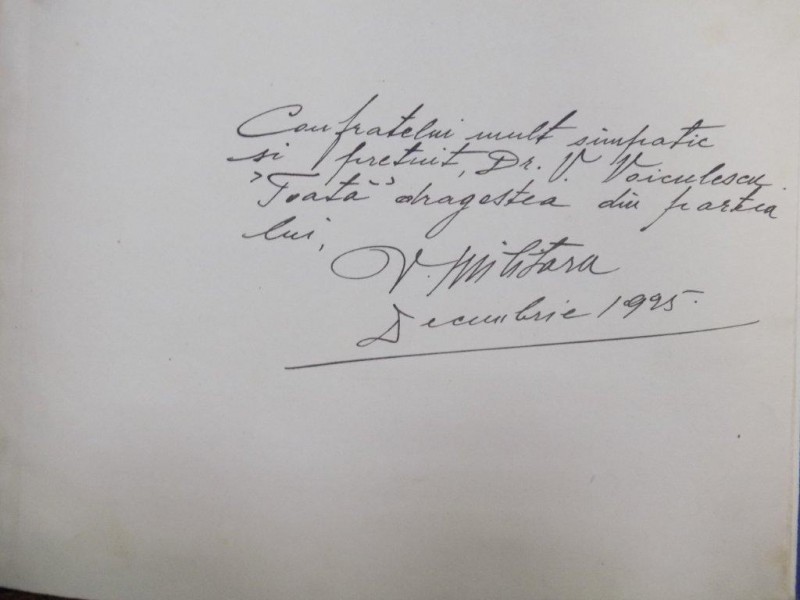 Confratelui mult simpatic
si pretuit, Dr. V. Voiculescu.
"Toată" dragestea din partea
lui,
V. Militaru
Decembrie 1925.